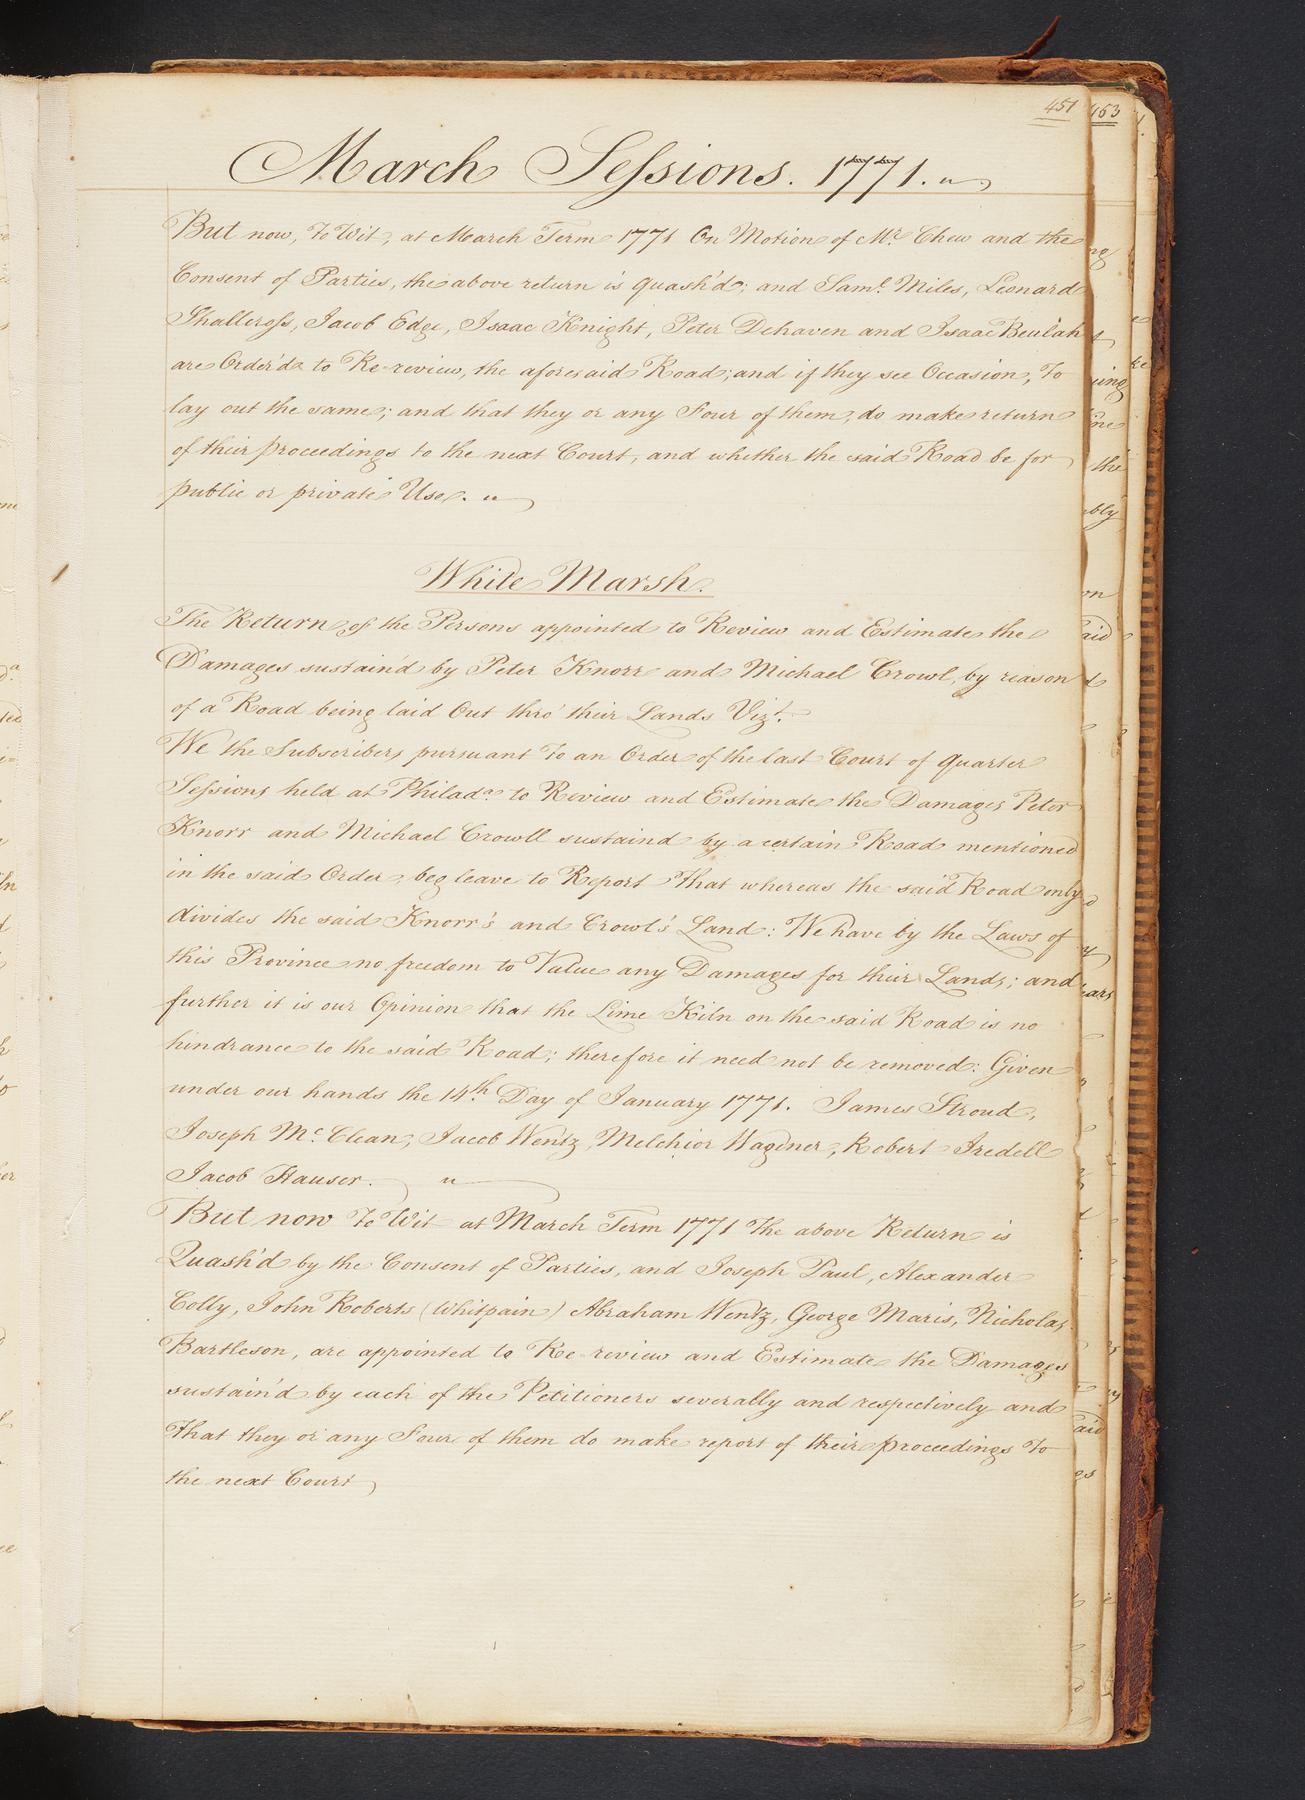 451
March Sessions. 1771.
But now, To Wit, at March Term 1771 On Motion of Mr. Chew and the
Consent of Parties, the above return is quash'd; and Saml. Miles, Leonard
Shallcross, Jacob Edge, Isaac Knight, Peter Dehaven and Isaac Beulah
are Order'd to Re-review, the aforesaid Road; and if they see Occasion, To
lay out the same; and that they or any Four of them, do make return
of their proceedings to the next Court, and whether the said Road be for
public or private Use.
White Marsh.
The Return of the Persons appointed to Review and Estimate the
Damages sustain'd by Peter Knorr and Michael Crowl, by reason
of a Road being laid Out thro' their Lands Vizt.
We the Subscribers pursuant To an Order of the last Court of quarter
Sessions held at Philada. to Review and Estimate the Damages Peter
Knorr and Michael Crowll sustaind by a certain Road mentioned
in the said Order, beg leave to Report That whereas the said Road only
divides the said Knorr's and Crowl's Land: We have by the Laws of
this Province no freedom to Value any Damages for their Lands; and
further it is our Opinion that the Lime Kiln on the said Road is no
hindrance to the said Road; therefore it need not be removed: Given
under our hands the 14th. Day of January 1771. James Stroud,
Joseph Mc.Clean, Jacob Wentz, Melchior Wagener, Robert Iredell
Jacob Hauser.
But now To Wit at March Term 1771 The above Return is
Quash'd by the Consent of Parties, and Joseph Paul, Alexander
Colly, John Roberts (Whitpain) Abraham Wentz, George Maris, Nicholas
Bartleson, are appointed to Re-review and Estimate the Damages
sustain'd by each of the Petitioners severally and respectively and
That they or any Four of them do make report of their proceedings To
the next Court